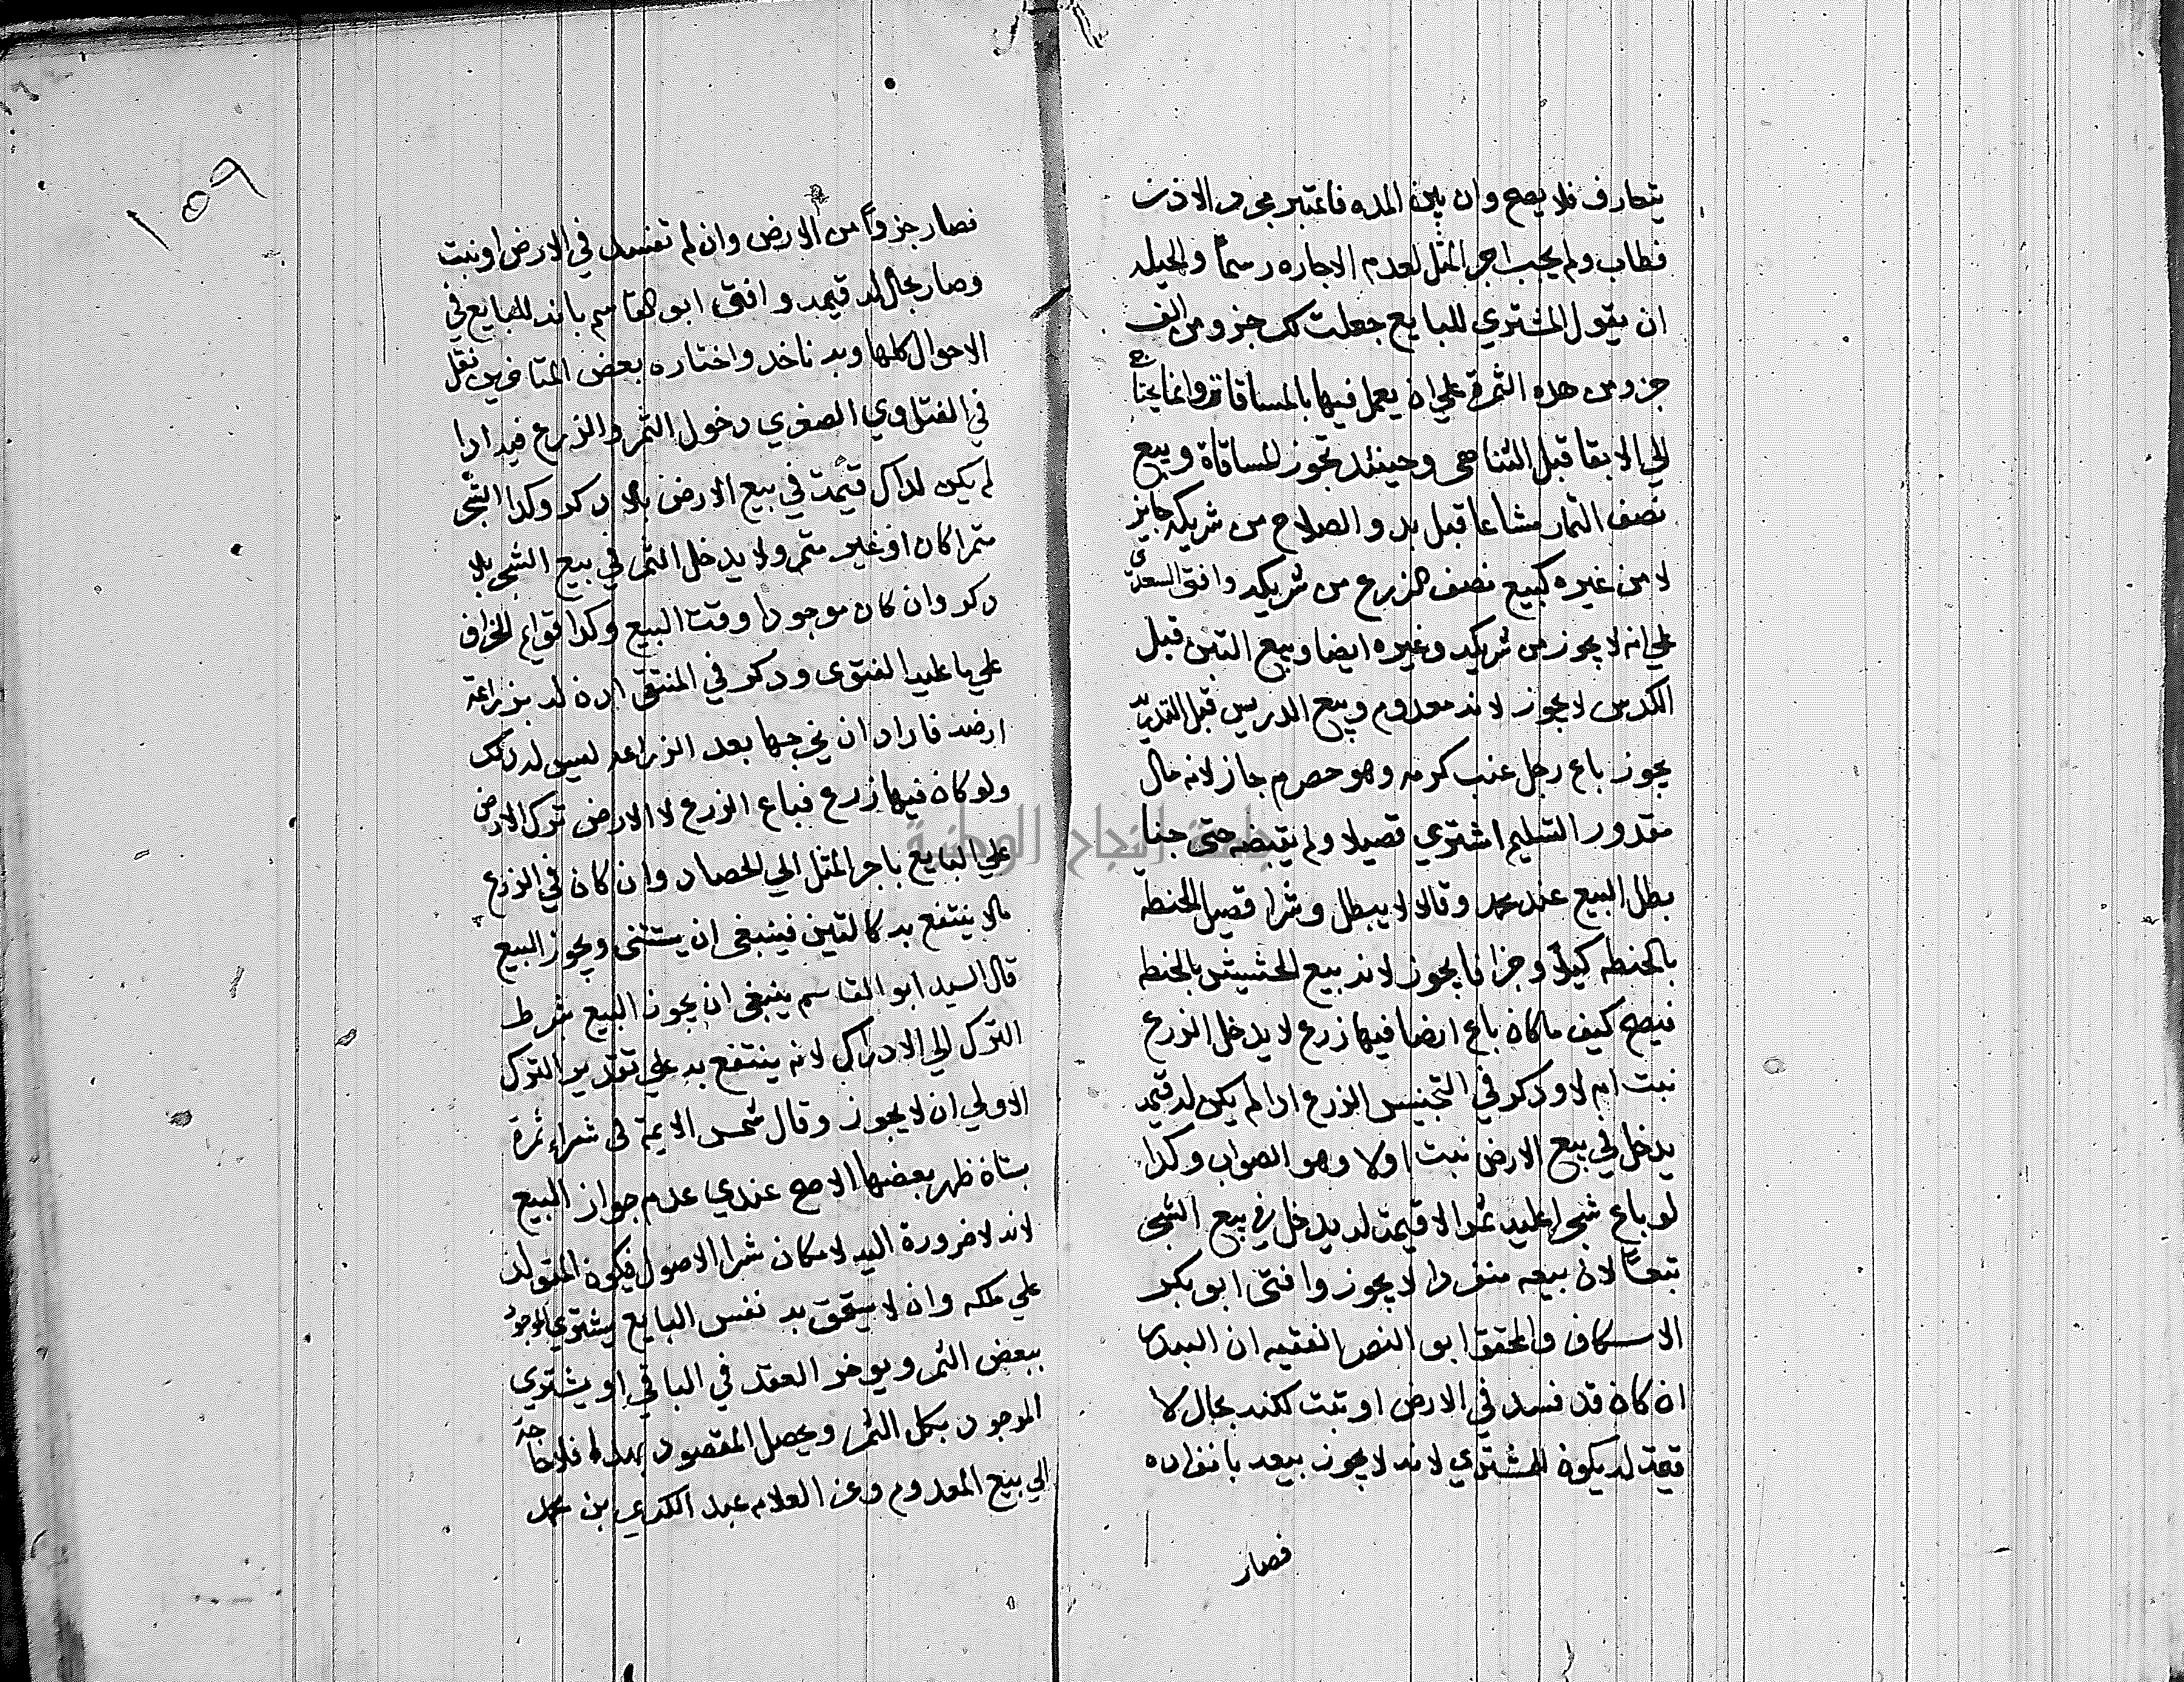 يتعارف فلا يصح وان بين المده فاعتبر مجرد الاذن
فطاب ولم يجب اجر المثل لعدم الاجاره رسمًا والحيله
ان يقول المشتري للبايع جعلت لك جزو من الف
جزو من هده الثمرة علي ان يعمل فيها بالمساقاة وانما يحتاج
الي الابقا قبل التناهي وحينئد تجوز المساقاة وبيع
نصف الثمار مشاعا قبل بدو الصلاح من شريكه جايز
لا من غيره كبيع نصف الزرع من شريكه وافتى السعدى
علي انه لا يجوز من شريكه وغيره ايضا وبيع التبن قبل
الكدس لا يجوز لانه معدوم وبيع الدريس قبل
يجوز باع رجل عنب كرمه وهو حصرم جاز لانه مال
مقدور التسليم اشتري قصيلا ولم يقبضه حتى
بطل البيع عند محمد وقالا لا يبطل وشرا قصيل الحنطه
بالحنطه كيلًا وجزافا يجوز لانه بيع الحشيش بالحنطه
فيصح كيف ما كان باع ارضا فيها زرع لا يدخل الزرع
نبت ام لا ودكر في التجنيس الزرع ادا لم يكن له قيمه
يدخل في بيع الارض نبت اولا وهو الصواب وكدا
لو باع شجرا عليه ثمرا لا قيمة له يدخل في بيع الشجر
تبعًا لان بيعه منفردا لا يجوز وافتى ابو بكر
الاسكاف والمحقق ابو النصر الفقيه ان البدر
ان كان قد فسد في الارض او نبت لكنه بحال لا
قيمة له يكون للمشتري لانه لا يجوز بيعه بانفراده
فصار
١٥٩
فصار جزوًا من الارض وان لم تفسد في الارض او نبت
وصار بحال له قيمه وافتى ابو القاسم بانه للبايع في
الاحوال كلها وبه ناخد واختاره بعض المتاخرين نقل
في الفتاوي الصغري دخول الثمر والزرع فيه ادا
لم يكن لداك قيمة في بيع الارض بلا دكر وكدا الشجر
مثمرا كان او غير مثمر ولا يدخل الثمر في بيع الشجر بلا
دكر وان كان موجودا وقت البيع وكدا قوايم الخلاف
علي ما عليه الفتوى ودكر في المنتقى ادن له بزراعة
ارضه فاراد ان يخرجها بعد الزراعه ليس له دلك
ولو كان فيها زرع فباع الزرع لا الارض ترك الارض
علي البايع باجر المثل الي الحصاد وان كان في الزرع
مالا ينتفع به كالتين فينبغى ان يستثنى ويجوز البيع
قال السيد ابو القاسم ينبغى ان يجوز البيع شرط
الترك الي الادراك لانه ينتفع به علي تقدير الترك
الاولي ان لا يجوز وقال شمس الايمة فى شراء ثمرة
بستان ظهر بعضها الاصح عندي عدم جواز البيع
لانه لا ضرورة اليه لامكان شرا الاصول فيكون المتولد
علي ملكه وان لا يستحق به نفس البايع يشتري الموجود
ببعض الثمر ويوخر العقد في الباقي او يشتري
الموجود بكل الثمر ويحصل المقصود بهدا فلا حاجة
الي بيع المعدوم وعن العلام عبد الكريم بن محمد
جامعة النجاح الوطنية